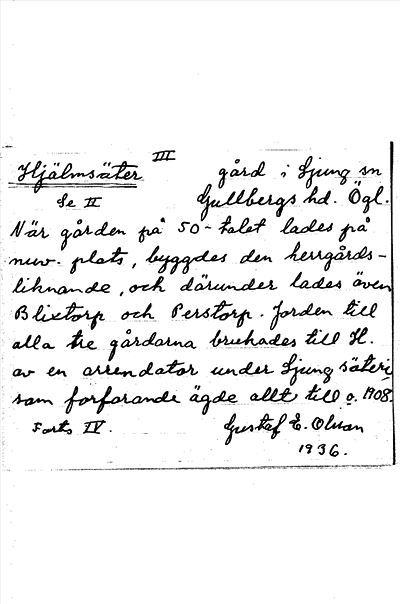 III
Hjälmsäter gård i Ljung sn
Se II Gullbergs hd. Ögl.
När gården på 50-talet lades på
nuv. plats, byggdes den herrgårds-
liknande, och därunder lades även
Blixtorp och Perstorp. Jorden till
alla tre gårdarna brukades till H.
av en arrendator under Ljung säteri,
som forfarande ägde allt till o. 1908.
Forts IV. Gustaf E. Olsson
1936.